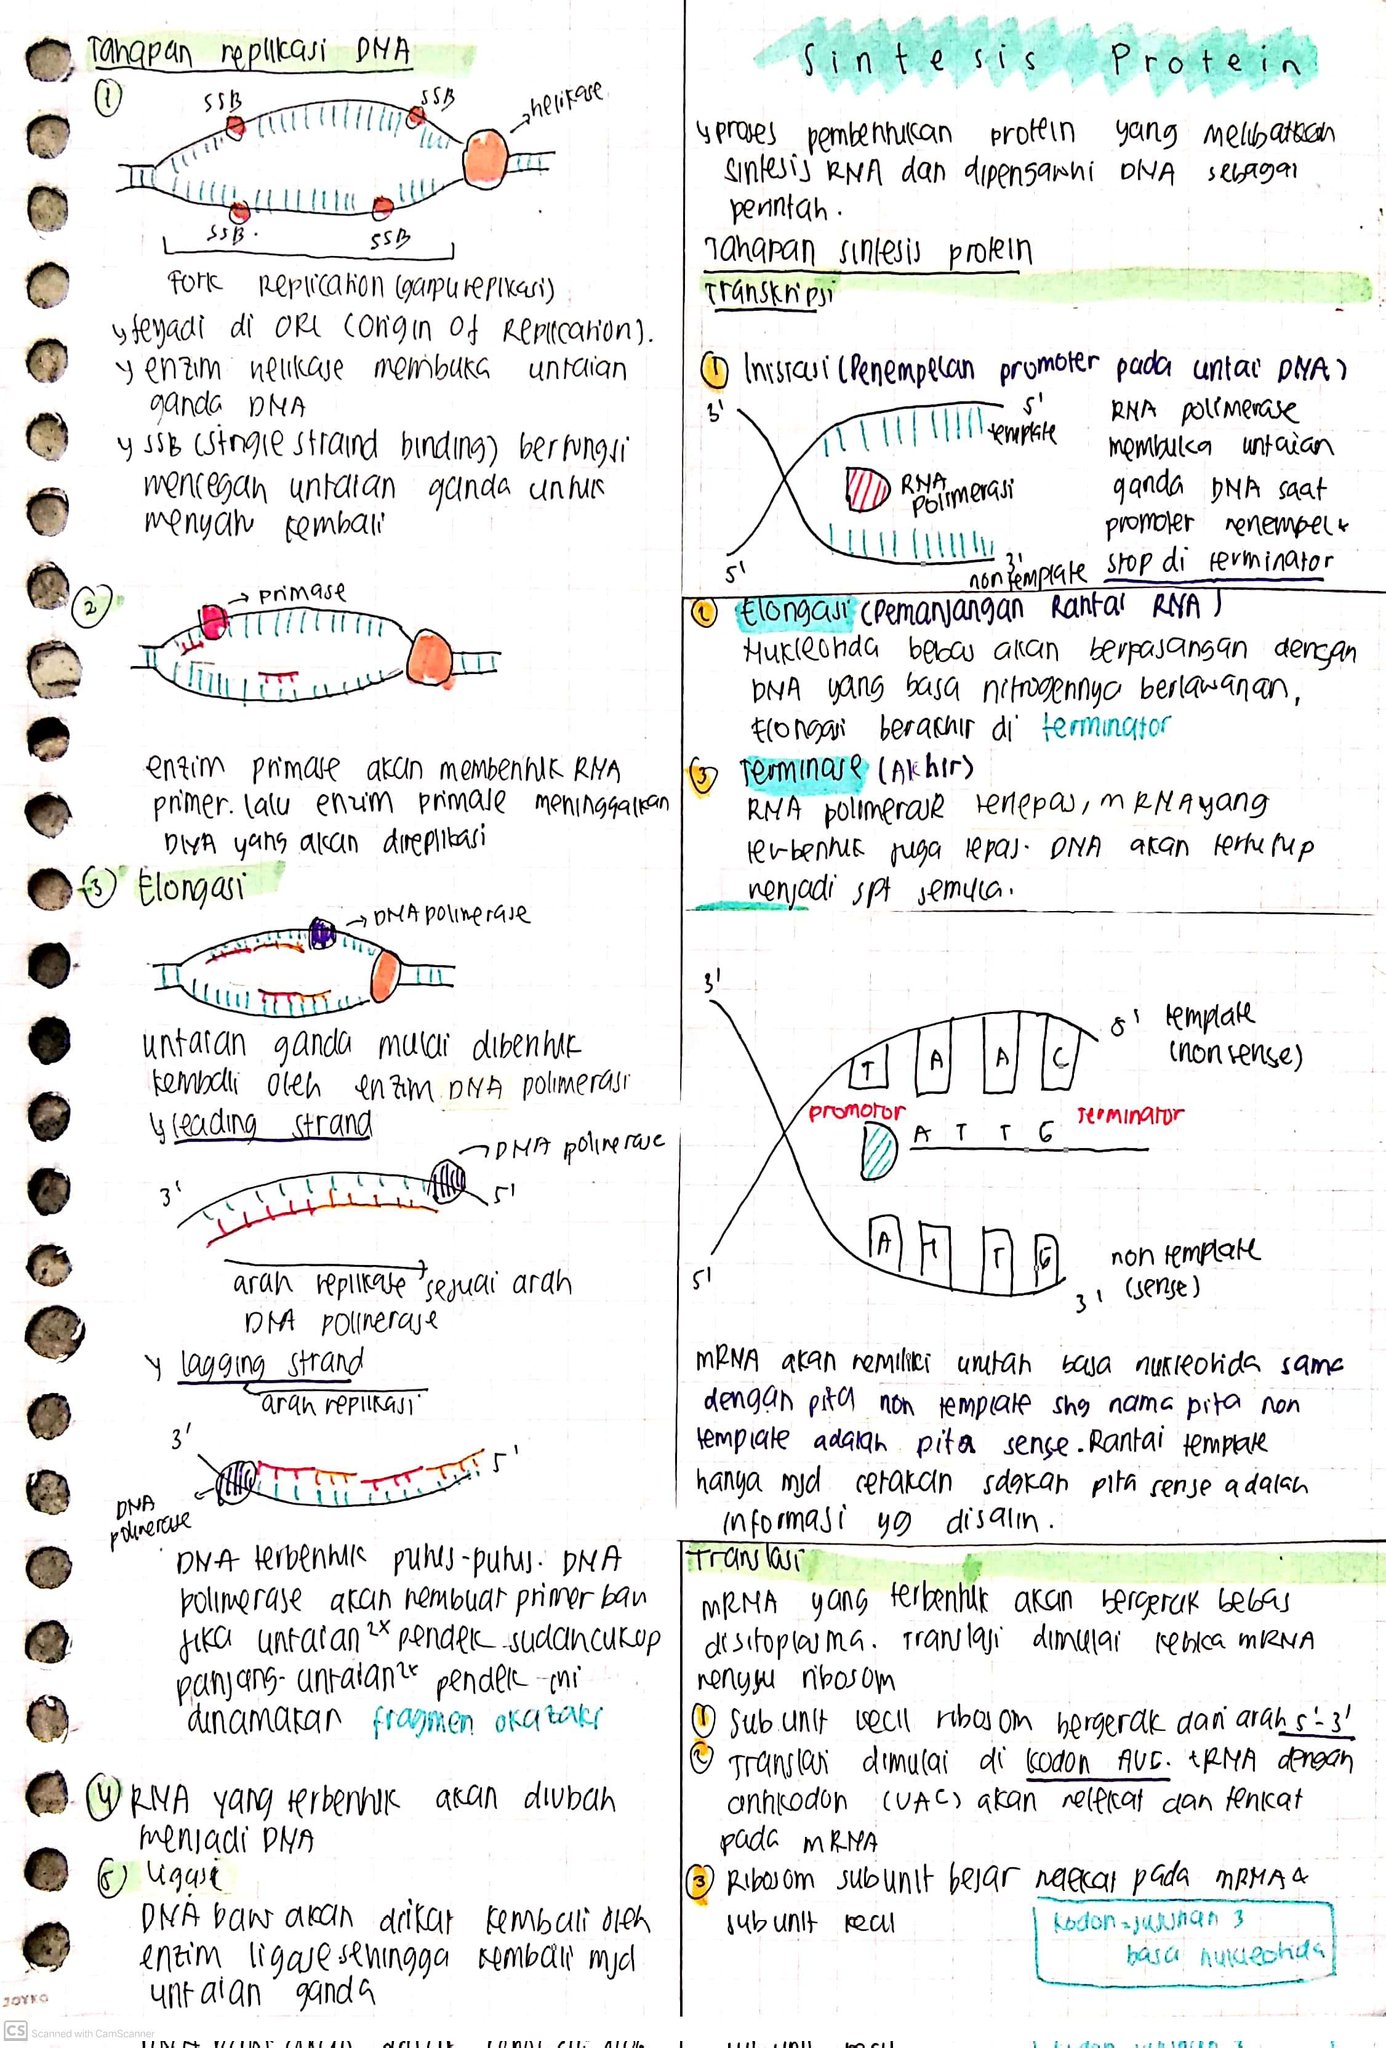 Tahapan replikasi DNA
1
SSB
SSB
helikase
SSB.
SSB
Fork Replication (garpu replikasi)
terjadi di ORI (Origin Of Replication).
enzim helikase membuka untaian
ganda DNA
SSB (single straind binding) berfungsi
mencegah untaian ganda untuk
menyatu kembali
2
primase
enzim primase akan membentuk RNA
primer. lalu enzim primase meninggalkan
DNA yang akan direplikasi
3 Elongasi
DNA polimerase
untaian ganda mulai dibentuk
kembali oleh enzim DNA polimerasi
leading strand
DNA polimerase
3'
5'
arah replikase sesuai arah
DNA polimerase
lagging strand
arah replikasi
3'
5'
DNA
polimerase
DNA terbentuk putus-putus. DNA
polimerase akan membuat primer baru
jika untaian2x pendek sudah cukup
panjang- untaian2x pendek ini
dinamakan fragmen okazaki
4 RNA yang terbentuk akan diubah
menjadi DNA
5 Ligase
DNA baru akan diikat kembali oleh
enzim ligase sehingga kembali mjd
untaian ganda
JOYKO
CS Scanned with CamScanner
Sintesis Protein
proses pembentukan protein yang melibatkan
sintesis RNA dan dipengaruhi DNA sebagai
perintah.
Tahapan sintesis protein
Transkripsi
1 Inisiasi (Penempelan promoter pada untai DNA)
3'
5'
template
RNA
polimerasi
5'
3'
non template
RNA polimerase
membuka untaian
ganda DNA saat
promoter menempel &
stop di terminator
2 Elongasi (Pemanjangan Rantai RNA)
Nukleotida bebas akan berpasangan dengan
DNA yang basa nitrogennya berlawanan,
Elongasi berakhir di terminator
3 Terminase (Akhir)
RNA polimerase terlepas, mRNA yang
terbentuk juga lepas. DNA akan tertutup
menjadi spt semula.
3'
T A A C
5' template
(non sense)
promotor
A T T G
terminator
A T T G
5'
3'
non template
(sense)
mRNA akan memiliki urutan basa nukleotida sama
dengan pita non template shg nama pita non
template adalah pita sense. Rantai template
hanya mjd cetakan sdgkan pita sense adalah
informasi yg disalin.
Translasi
mRNA yang terbentuk akan bergerak bebas
disitoplasma. Translasi dimulai ketika mRNA
menuju ribosom
1 Sub unit kecil ribosom bergerak dari arah 5'-3'
2 Translasi dimulai di kodon AUG. tRNA dengan
antikodon (UAC) akan melekat dan terikat
pada mRNA
3 Ribosom subunit besar melekat pada mRNA &
subunit kecil
kodon = susunan 3
basa nukleotida